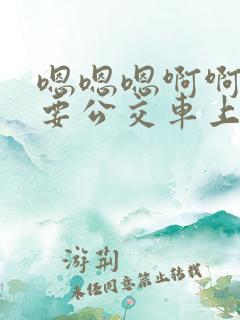 嗯嗯嗯啊啊
要公交車上
游荆
未经同意禁止转载